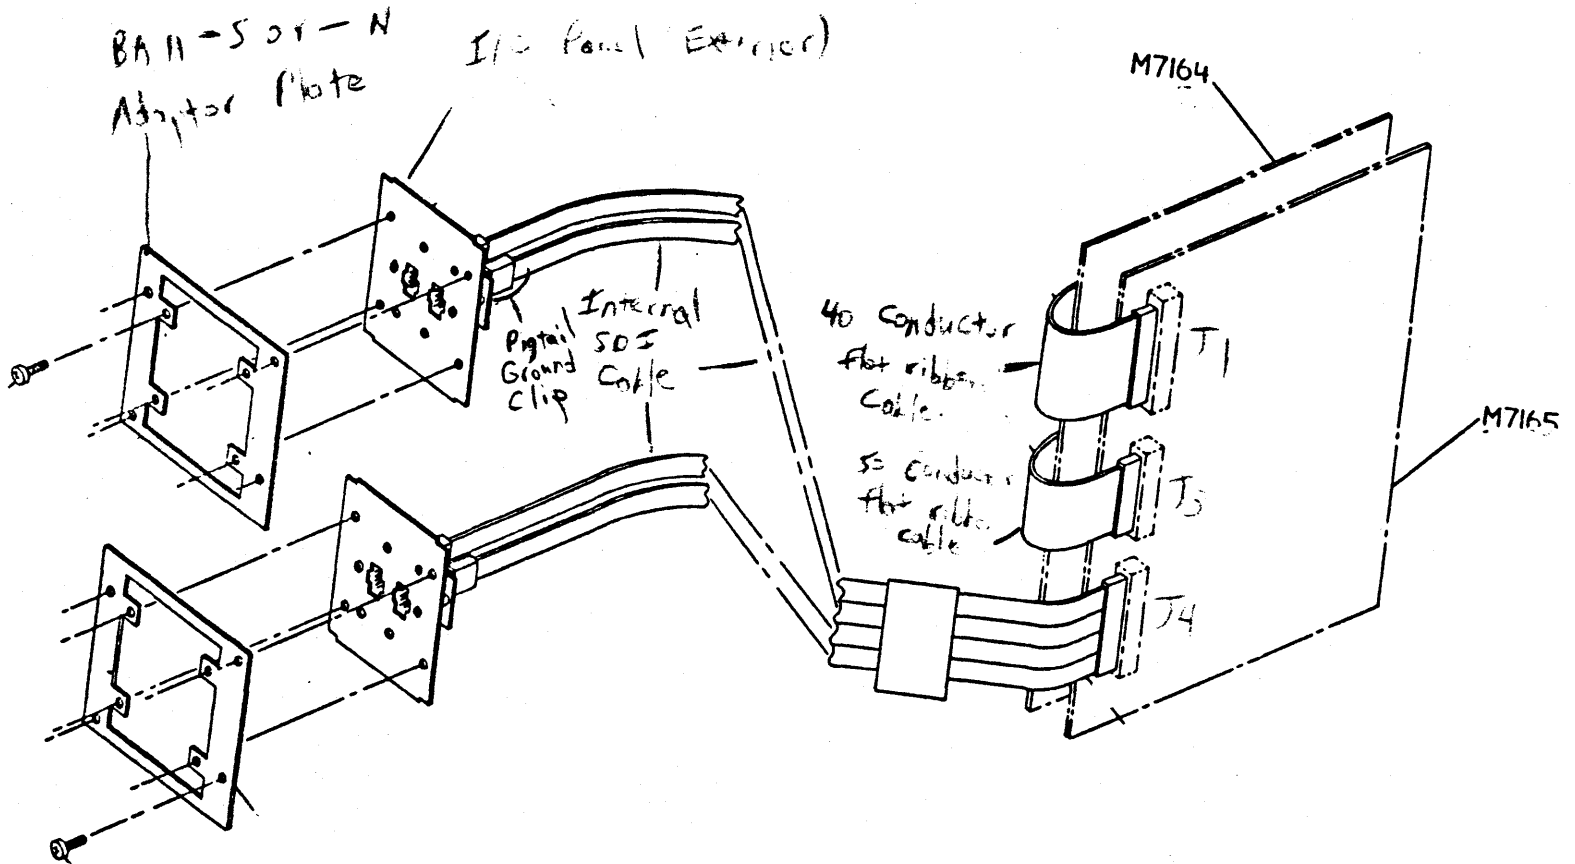 BA11-S or -N
Adaptor Plate
I/O Panel Exterior)
M7164
Pigtail
Ground
Clip
Internal
SDI
Cable
40 Conductor
flat ribbon
Cable
J1
M7165
50 conductor
flat ribbon
cable
J3
J4